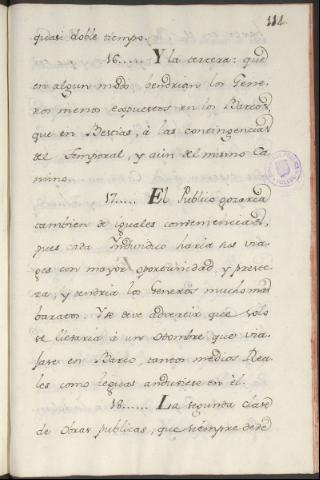 111.
quasi doble tiempo.
16...... Y la tercera: que
en algun modo bendrian los Gene-
ros menos expuestos en los Barcos,
que en Bestias, á las contingencias
del Temporal, y aún del mismo Ca-
mino.
17...... El Publico gozaria
tambien de iguales conveniencias,
pues cada Individuo haria sus via-
ges con mayor oportunidad, y preste-
za, y tendria los Generos mucho mas
baratos. Y se deve advertir que solo
se llevaria á un Hombre, que via-
jase en Barco, tantos medios Rea-
les como leguas anduviese en él.
18...... La segunda clase
de obras publicas, que siempre dexé